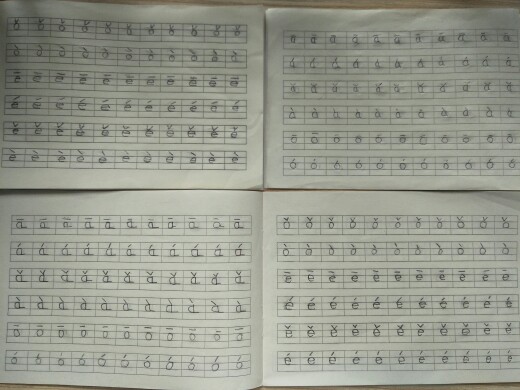 ǒ ǒ ǒ ǒ ǒ ǒ ǒ ǒ ǒ ǒ ǒ
ò ò ò ò ò ò ò ò ò ò ò
ē ē ē ē ē ē ē ē ē ē ē
é é é é é é é é é é é
ě ě ě ě ě ě ě ě ě ě ě
è è è è è è è è è è è
ā ā ā ā ā ā ā ā ā ā ā
á á á á á á á á á á á
ǎ ǎ ǎ ǎ ǎ ǎ ǎ ǎ ǎ ǎ ǎ
à à à à à à à à à à à
ō ō ō ō ō ō ō ō ō ō ō
ó ó ó ó ó ó ó ó ó ó ó
ā ā ā ā ā ā ā ā ā ā ā
á á á á á á á á á á á
ǎ ǎ ǎ ǎ ǎ ǎ ǎ ǎ ǎ ǎ ǎ
à à à à à à à à à à à
ō ō ō ō ō ō ō ō ō ō ō
ó ó ó ó ó ó ó ó ó ó ó
ǒ ǒ ǒ ǒ ǒ ǒ ǒ ǒ ǒ ǒ ǒ
ò ò ò ò ò ò ò ò ò ò ò
ē ē ē ē ē ē ē ē ē ē ē
é é é é é é é é é é é
ě ě ě ě ě ě ě ě ě ě ě
è è è è è è è è è è è